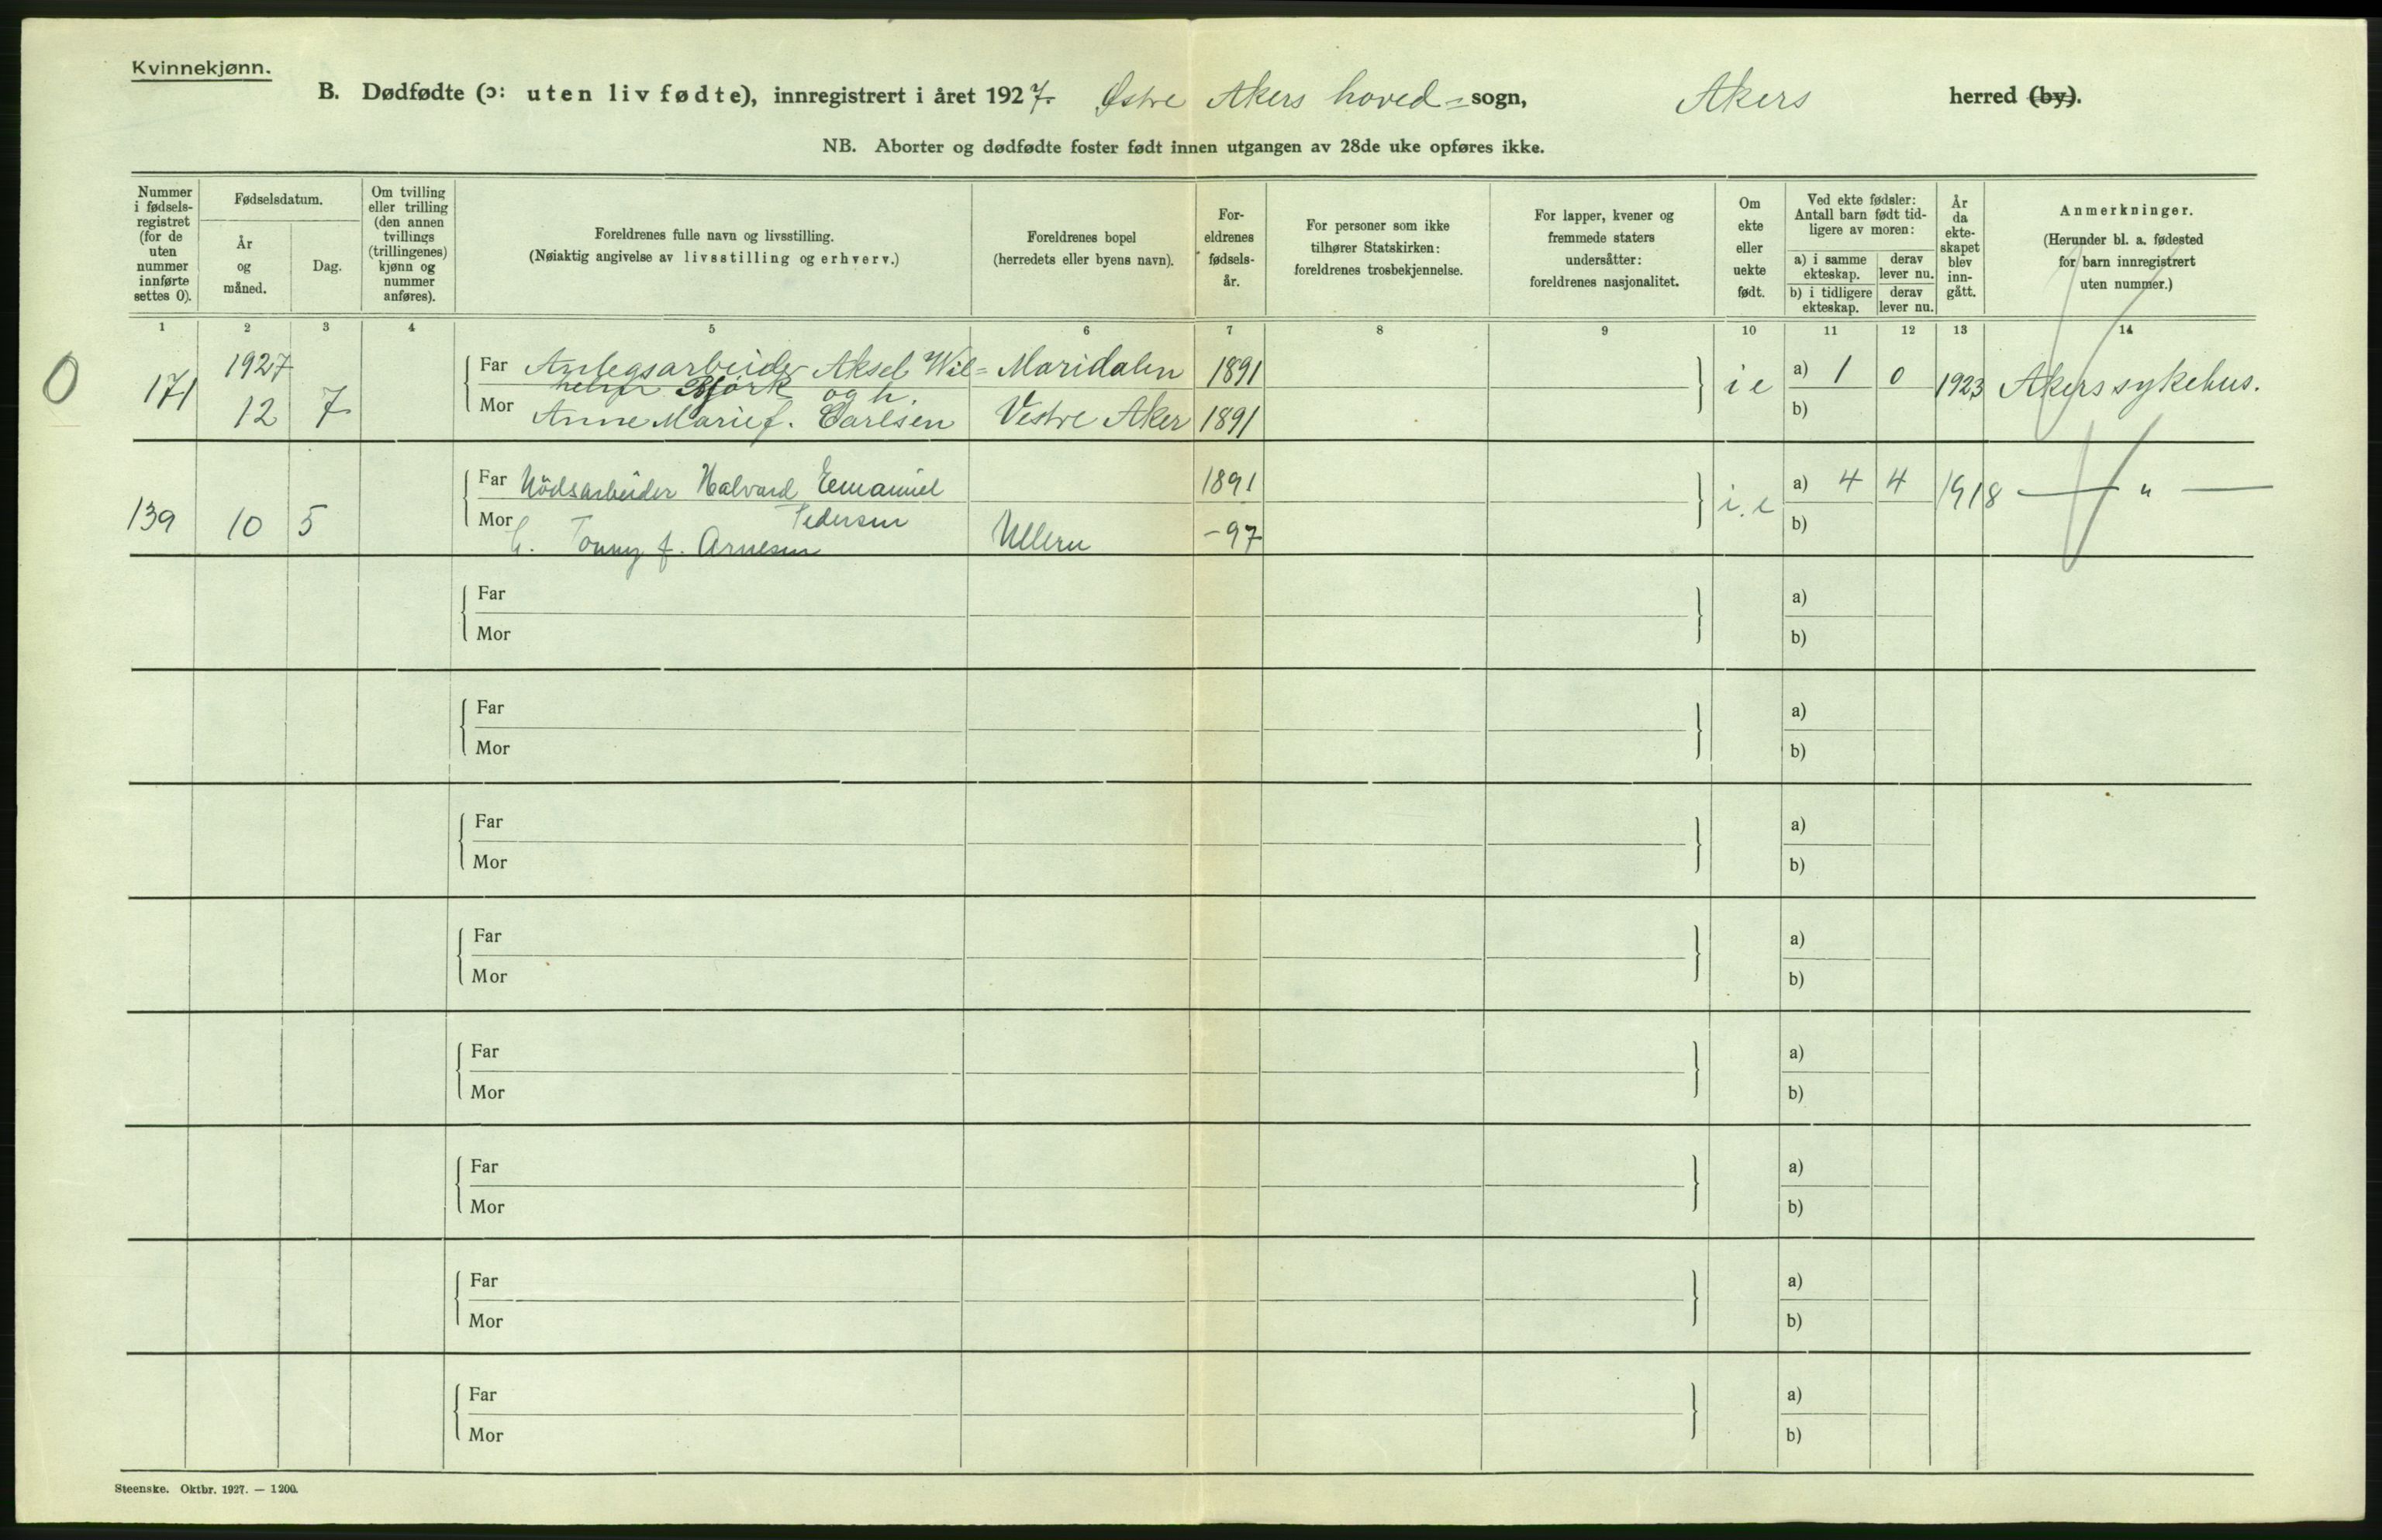 Kvinnekjønn.
B. Dødfødte (ɔ: uten liv fødte), innregistrert i året 1927. Østre Akers hoved- sogn, Akers herred (by).
NB. Aborter og dødfødte foster født innen utgangen av 28de uke opføres ikke.
Nummer i fødsels-registret (for de uten nummer innførte settes 0).
Fødselsdatum.
År og måned.
Dag.
Om tvilling eller trilling (den annen tvillings (trillingenes) kjønn og nummer anføres).
Foreldrenes fulle navn og livsstilling.
(Nøiaktig angivelse av livsstilling og erhverv.)
Foreldrenes bopel
(herredets eller byens navn).
For-eldrenes fødsels-år.
For personer som ikke tilhører Statskirken: foreldrenes trosbekjennelse.
For lapper, kvener og fremmede staters undersåtter: foreldrenes nasjonalitet.
Om ekte eller uekte født.
Ved ekte fødsler: Antall barn født tid-ligere av moren:
a) i samme ekteskap.
derav lever nu.
b) i tidligere ekteskap.
derav lever nu.
År da ekte-skapet blev inn-gått.
Anmerkninger.
(Herunder bl. a. fødested for barn innregistrert uten nummer.)
1 2 3 4 5 6 7 8 9 10 11 12 13 14
0
171 1927 12 7 Far Anlegsarbeider Aksel Wil= Maridalen 1891 i e a) 1 0 1923 Akers sykehus.
helm Bjørk og h.
Mor Anne Marie f. Carlsen Vestre Aker 1891 b)
139 10 5 Far Nödsarbeider Halvard Emanuel 1891 i. e a) 4 4 1918 — " —
Pedersen
Mor h. Tonny f. Arnesen Ullern -97 b)
Far a)
Mor b)
Far a)
Mor b)
Far a)
Mor b)
Far a)
Mor b)
Far a)
Mor b)
Far a)
Mor b)
Far a)
Mor b)
Far a)
Mor b)
Steenske. Oktbr. 1927. — 1200.